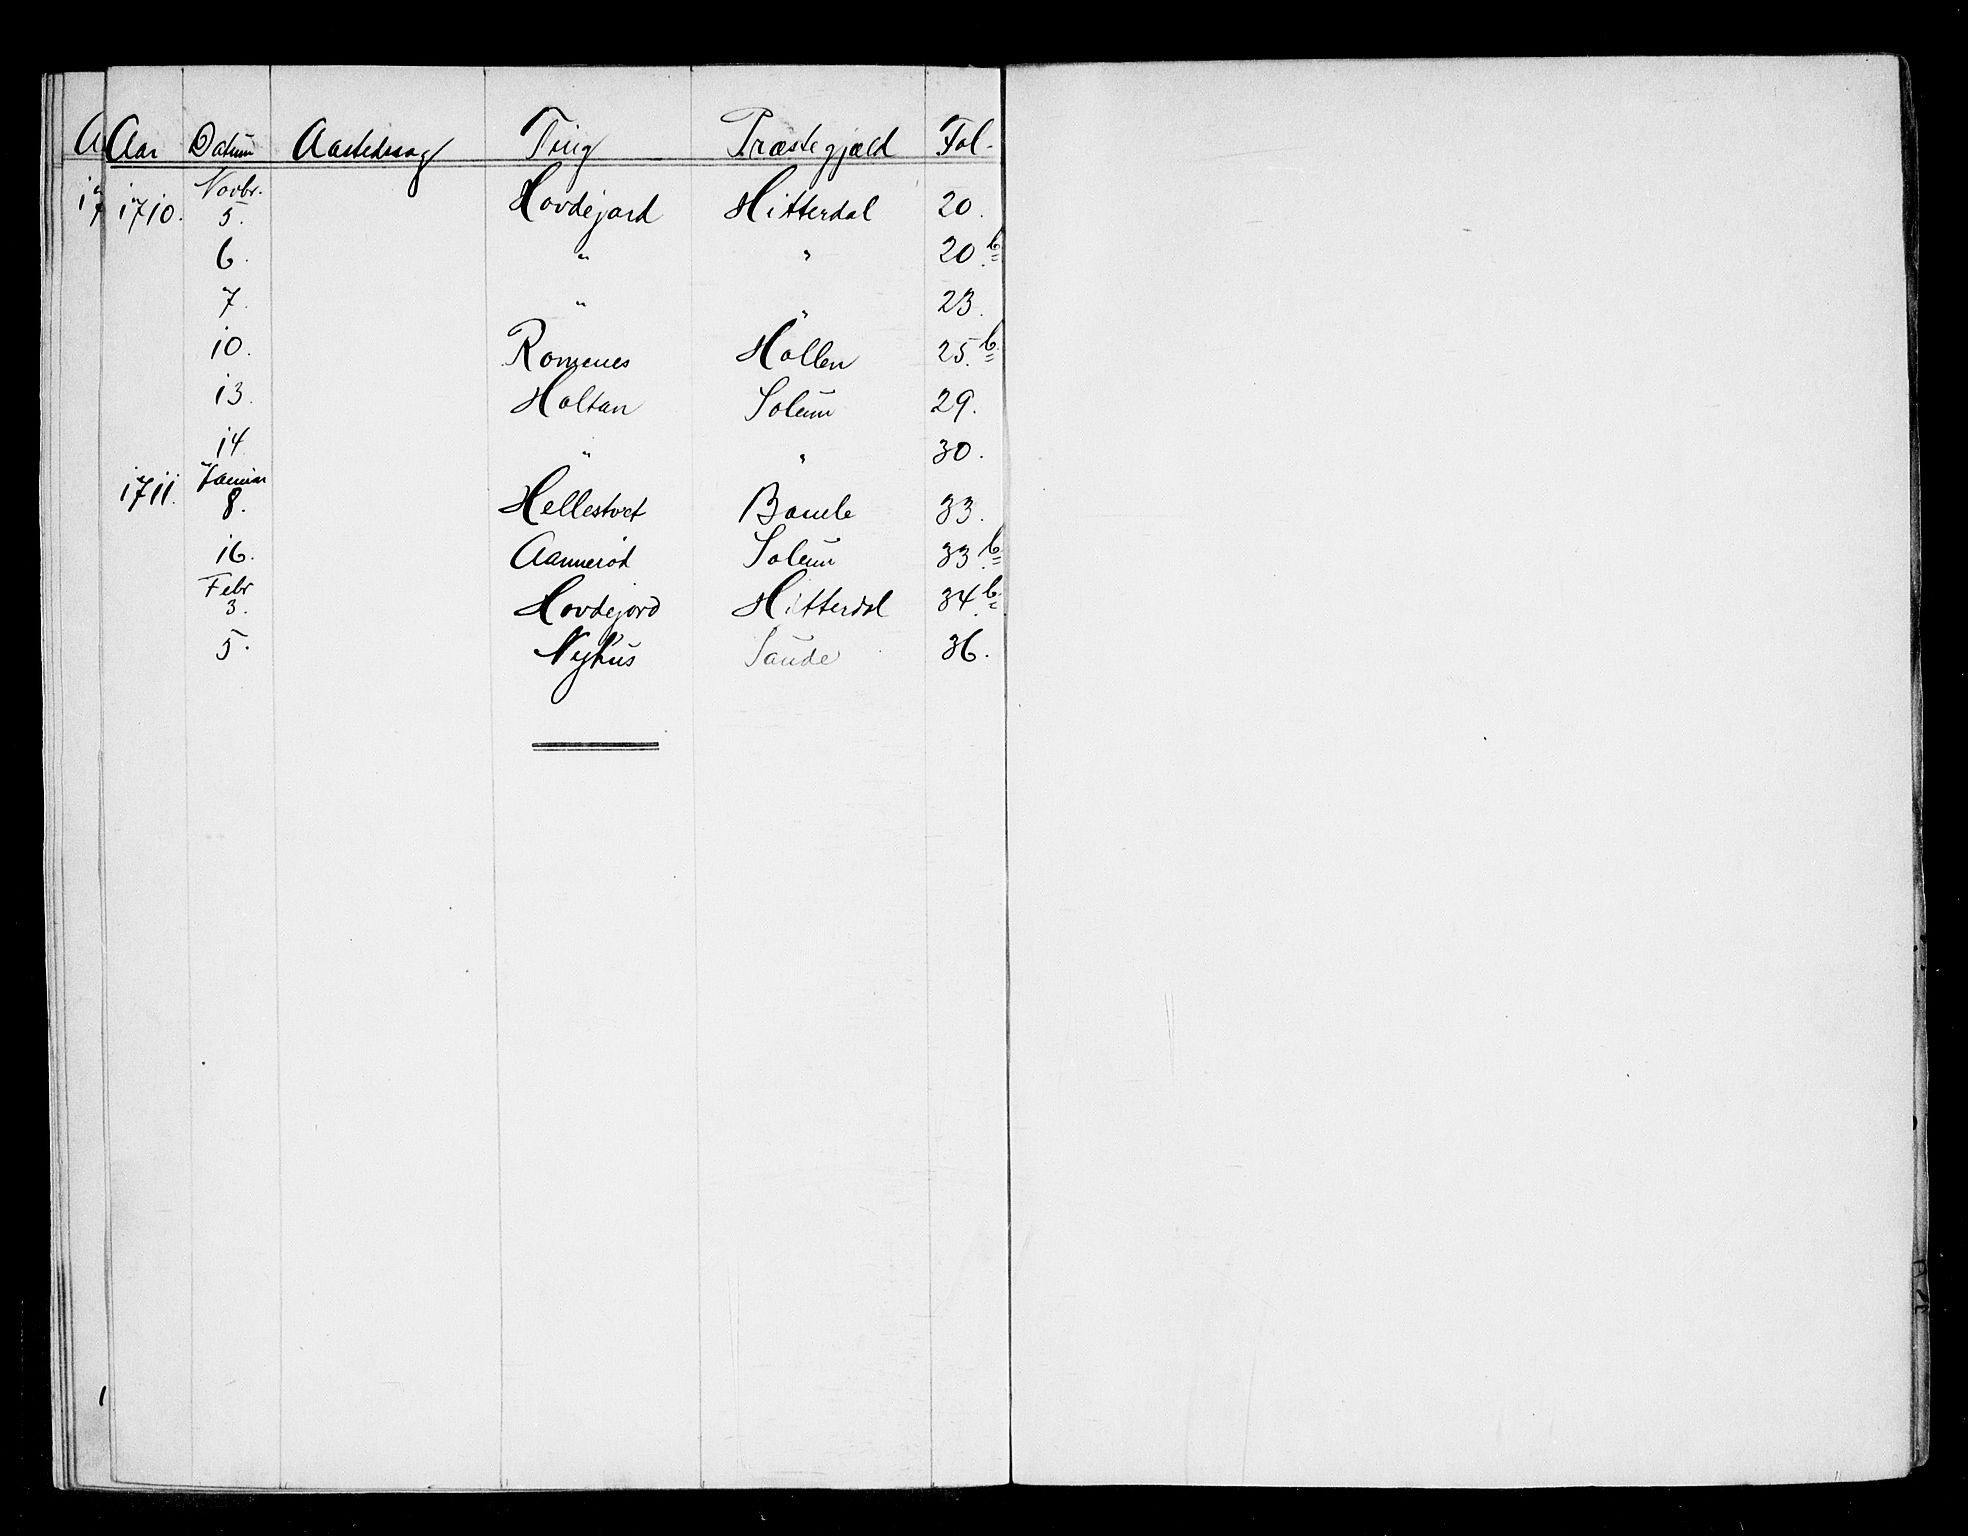 Aar Datum Aastedssag Ting Præstegjæld Fol.
1710. Novbr. 5. Hovdejord Hitterdal 20.
6. " " 20 b.
7. " " 23.
10. Romenes Hollen 25. b.
13. Holtan Solum 29.
14 " " 30.
1711. Januar 8. Hellestvet Bamle 33.
16. Aamnerød Solum 33 b.
Febr 3. Hovdejord Hitterdal 34 b.
5. Nyhus Saude 36.